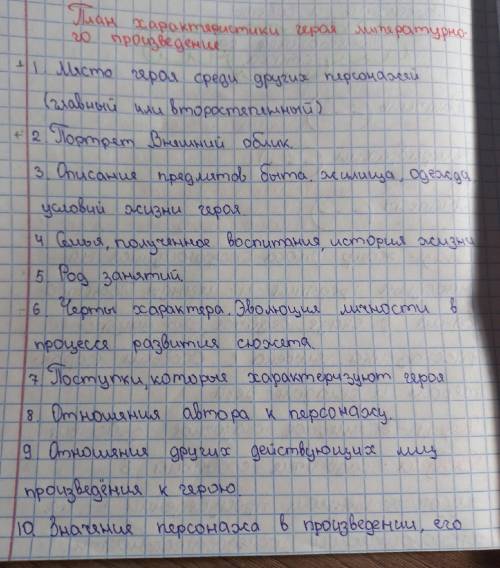 План характеристики героя литературно-
го произведение.
+ 1. Место героя среди других персонажей
(главный или второстепенный)
+ 2. Портрет Внешний облик.
3. Описание предметов быта. жилища, одежда
условий жизни героя
4 Семья, полученное воспитания, история жизни
5. Род занятий.
6. Черты характера. Эволюция личности в
процессе развития сюжета.
7 Поступки, которые характеризуют героя
8. Отношения автора к персонажу.
9 Отношения других действующих лиц
произведёния к герою.
10. Значения персонажа в произведении, его